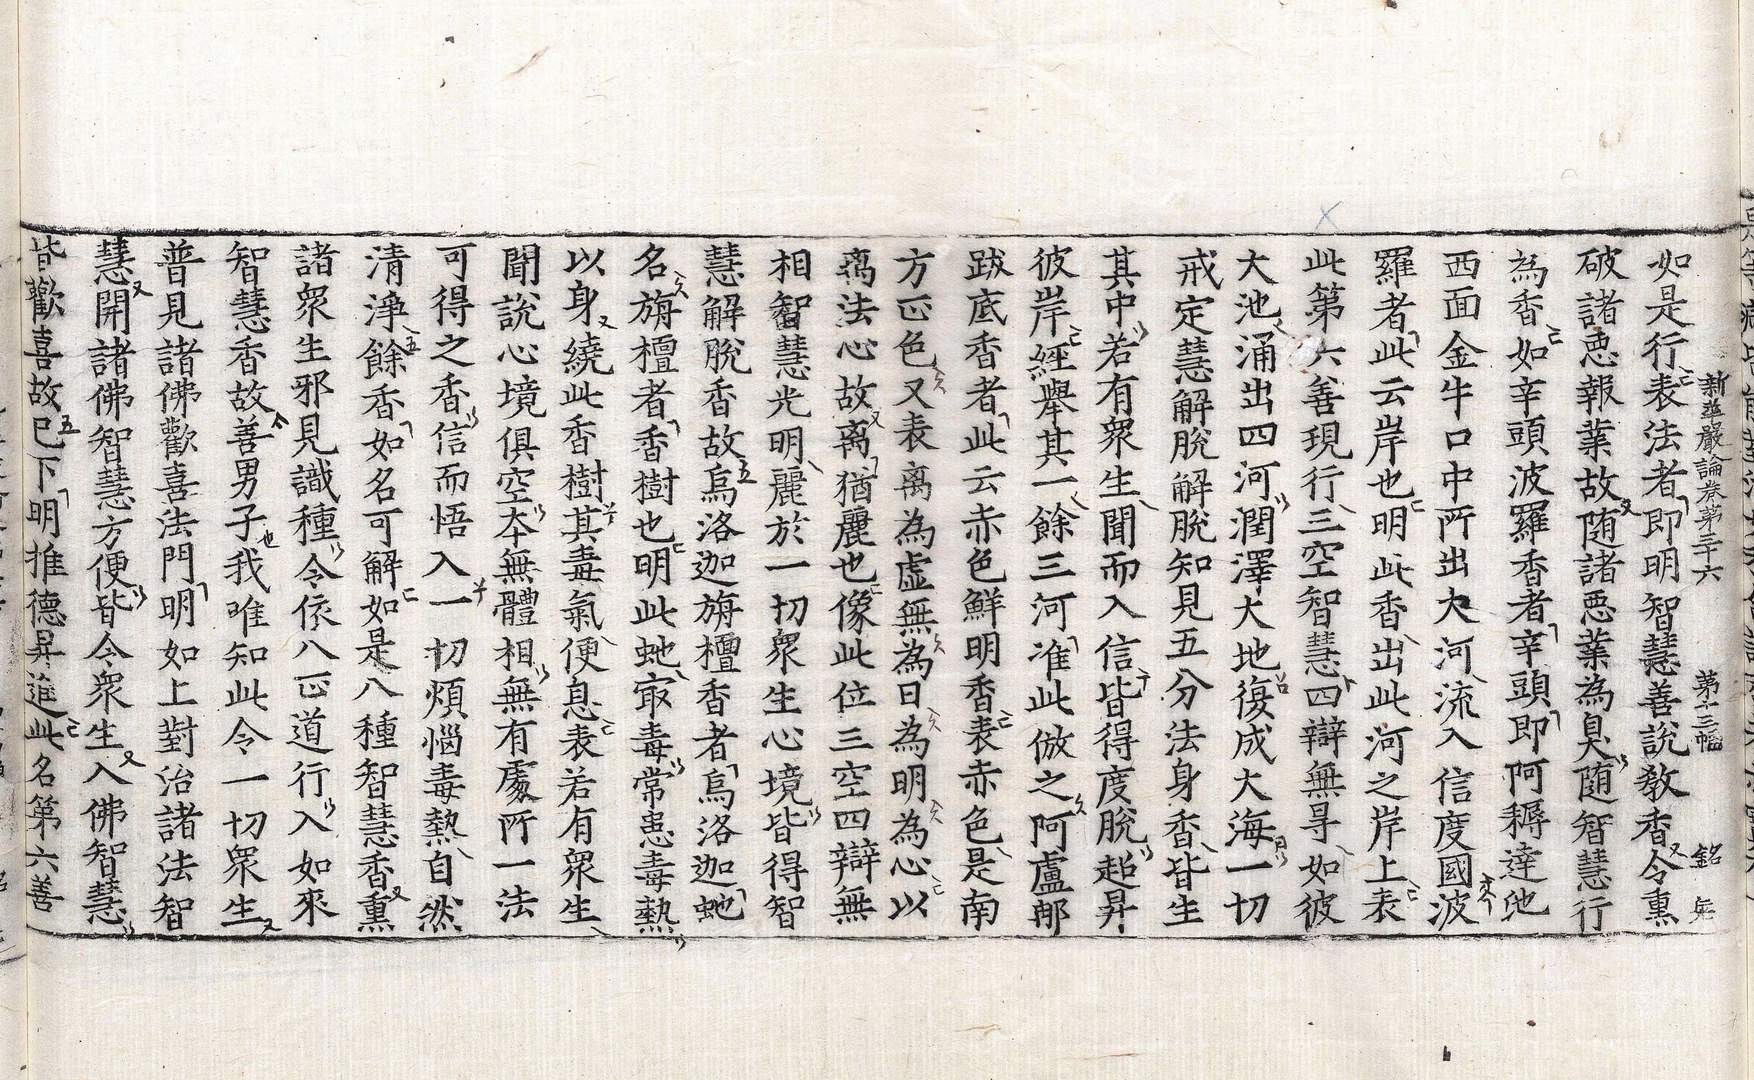 新華嚴論卷第三十六 第十三幅 銘 無
如是行表法者即明智慧善說教香令熏
破諸惡報業故随諸惡業為臭随智慧行
為香如辛頭波羅香者辛頭即阿耨達池
西面金牛口中所出大河流入信度國波
羅者此云岸也明此香出此河之岸上表
此第六善現行三空智慧四辯無㝵如彼
大池涌出四河潤澤大地復成大海一切
戒定慧解脫解脫知見五分法身香皆生
其中若有衆生聞而入信皆得度脫超昇
彼岸經舉其一餘三河准此倣之阿盧那
跋底香者此云赤色鮮明香表赤色是南
方正色又表离為虛無為日為明為心以
离法心故离猶麗也像此位三空四辯無
相智慧光明麗於一切衆生心境皆得智
慧解脫香故烏洛迦旃檀香者烏洛迦虵
名旃檀者香樹也明此虵㝡毒常患毒熱
以身繞此香樹其毒氣便息表若有衆生
聞說心境俱空本無體相無有處所一法
可得之香信而悟入一切煩惱毒熱自然
清淨餘香如名可解如是八種智慧香熏
諸衆生邪見識種令依八正道行入如來
智慧香故善男子我唯知此令一切衆生
普見諸佛歡喜法門明如上對治諸法智
慧開諸佛智慧方便皆令衆生入佛智慧
皆歡喜故已下明推德昇進此名第六善